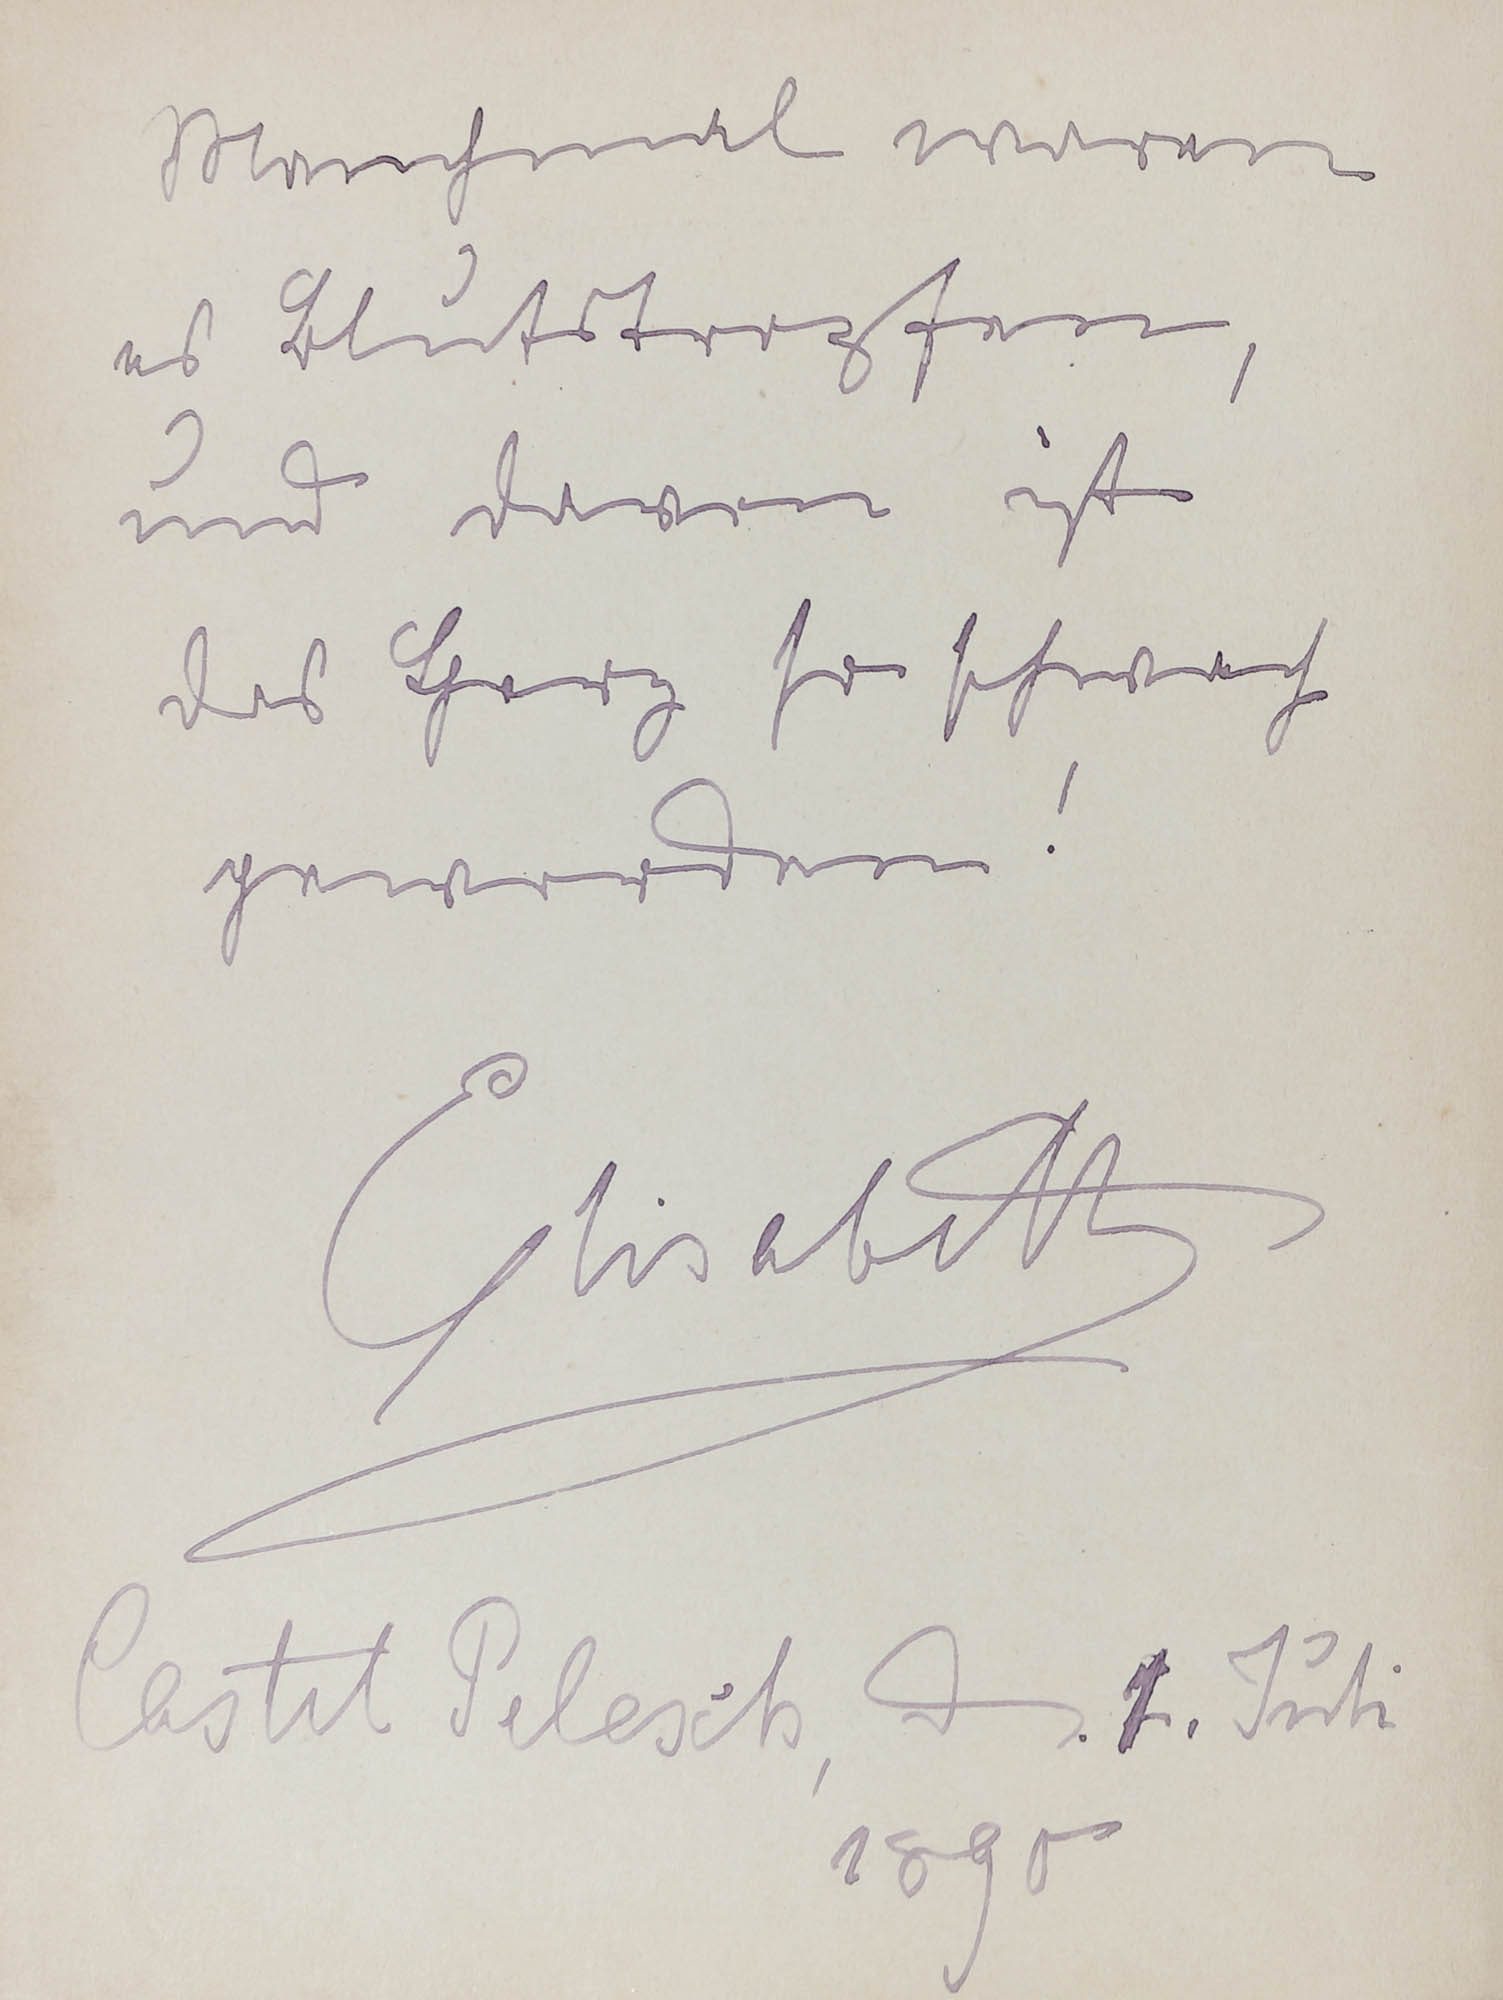 Manchmal waren
es Blutstropfen,
und davon ist
das Herz so schwach
geworden!
Elisabeth
Castel Pelesch, d. 1. Juli
1890